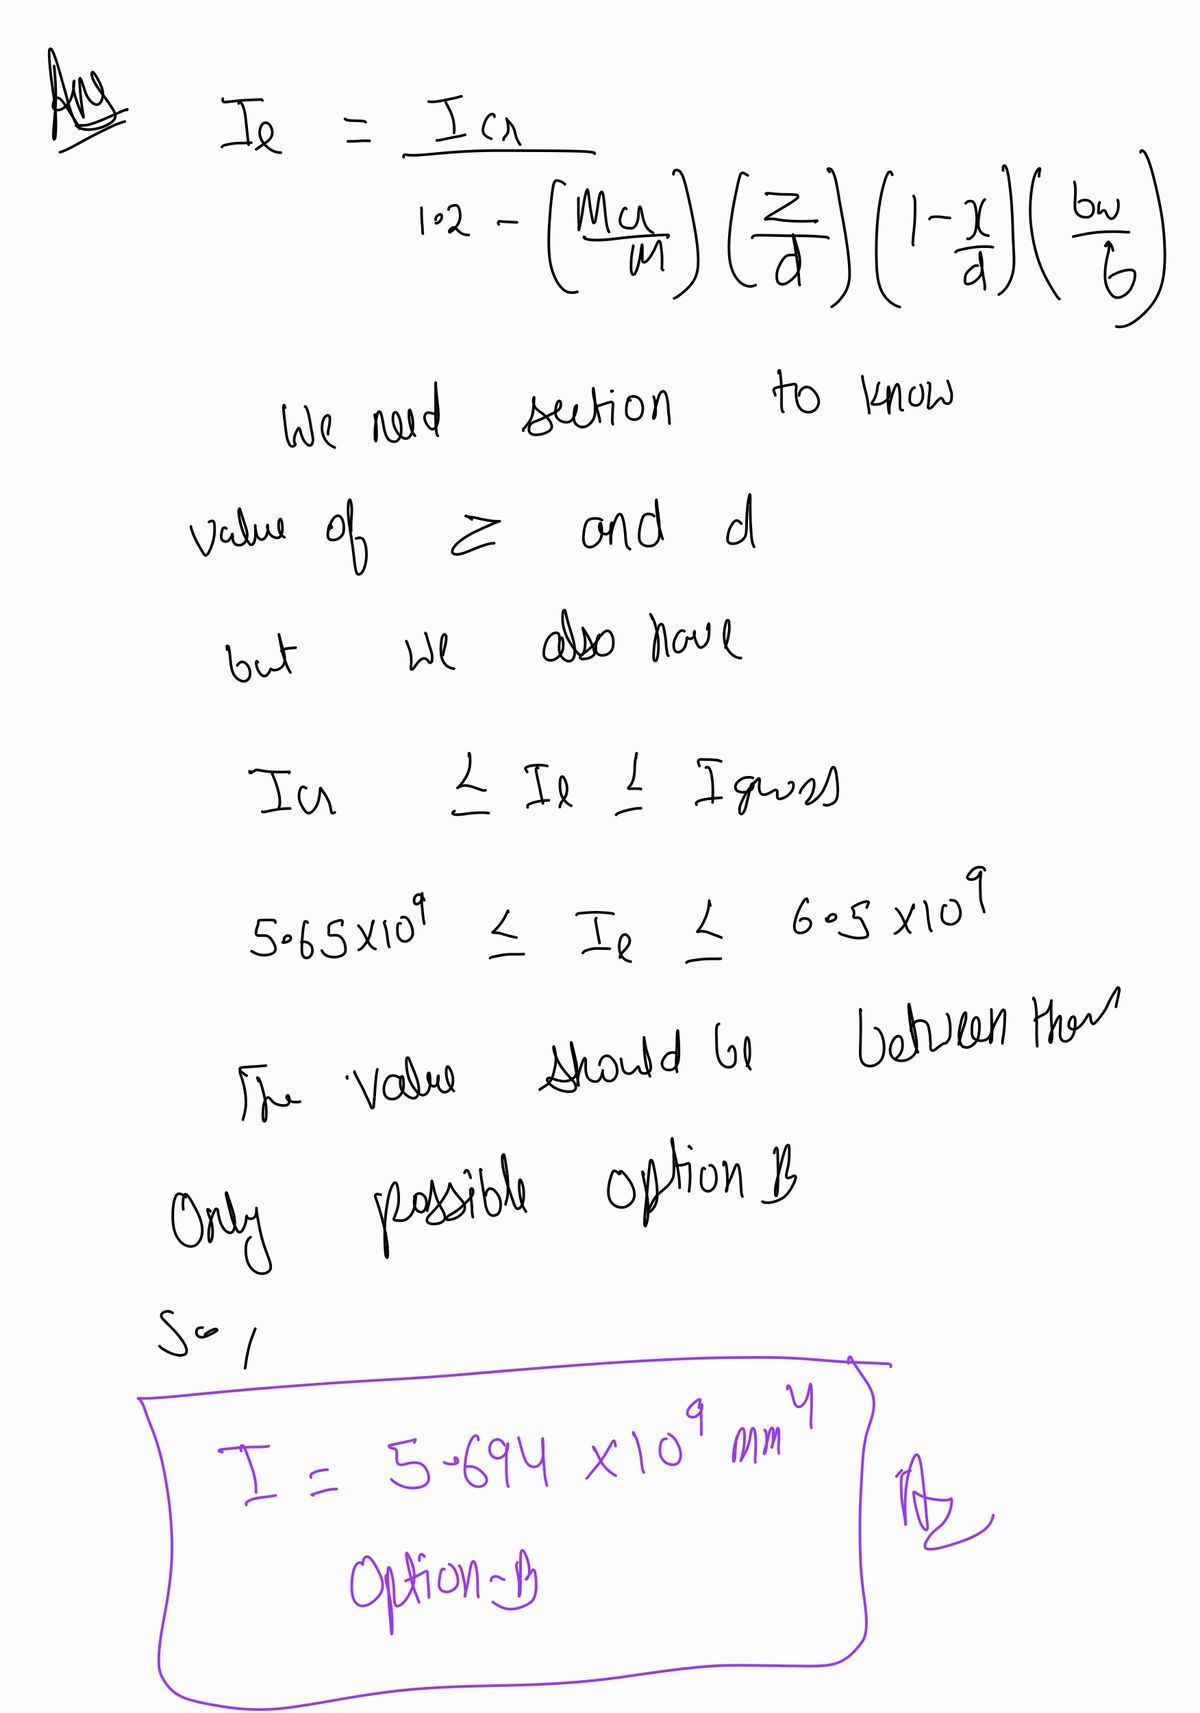 Ans
Ie = Icr / 1.2 - (Mcr/M) (z/d) (1 - x/d) (bw/b)
We need section to know
value of z and d
but we also have
Icr ≤ Ie ≤ Igross
5.65×10⁹ ≤ Ie ≤ 6.5×10⁹
The value should be between them
Only possible option B
So,
I = 5.694 ×10⁹ mm⁴
Option-B